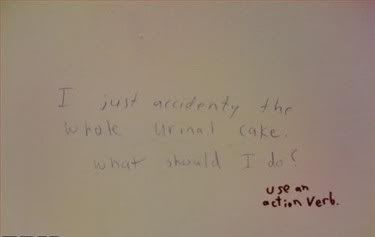 I just accidenty the
whole urinal cake.
what should I do?
use an
action verb.